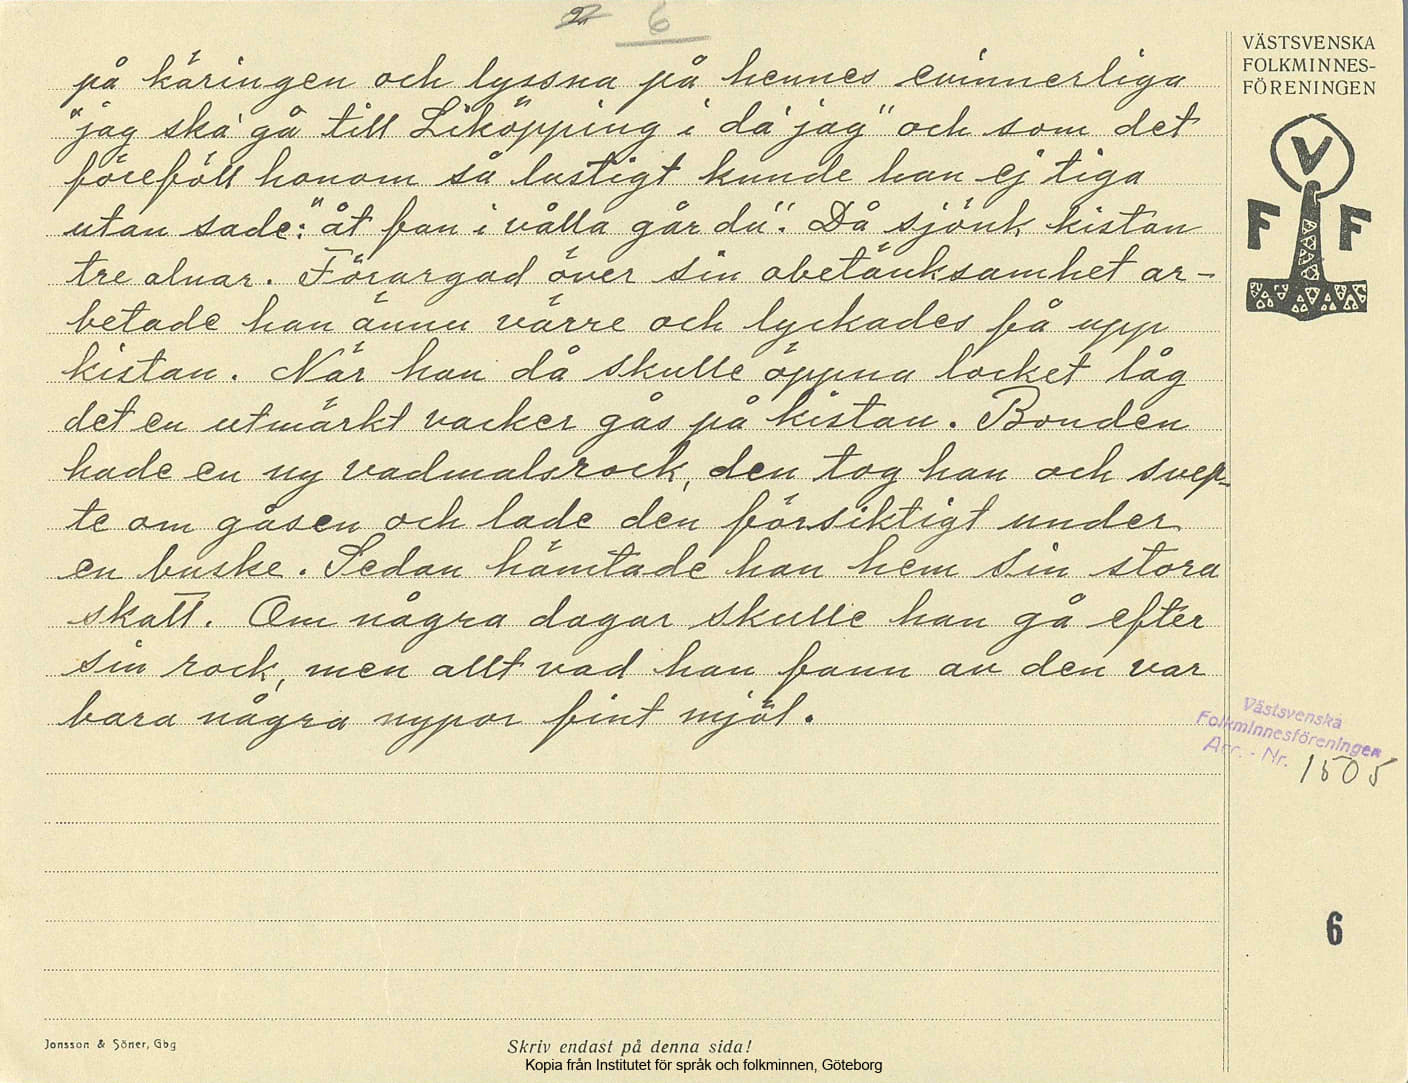 6
på käringen och lyssna på hennes evinnerliga
"jag ska' gå till Liköpping i da' jag" och som det
föreföll honom så lustigt kunde han ej tiga
utan sade: "åt fan i vålla går du". Då sjönk kistan
tre alnar. Förargad över sin obetänksamhet ar-
betade han ännu värre och lyckades få upp
kistan. När han då skulle öppna locket låg
det en utmärkt vacker gås på kistan. Bonden
hade en ny vadmalsrock, den tog han och svep-
te om gåsen och lade den försiktigt under
en buske. Sedan hämtade han hem sin stora
skatt. Om några dagar skulle han gå efter
sin rock, men allt vad han fann av den var
bara några nypor fint mjöl.
VÄSTSVENSKA
FOLKMINNES-
FÖRENINGEN
V
F F
Västsvenska
Folkminnesföreningen
Acc. - Nr. 1505
6
Jonsson & Söner, Gbg
Skriv endast på denna sida!
Kopia från Institutet för språk och folkminnen, Göteborg